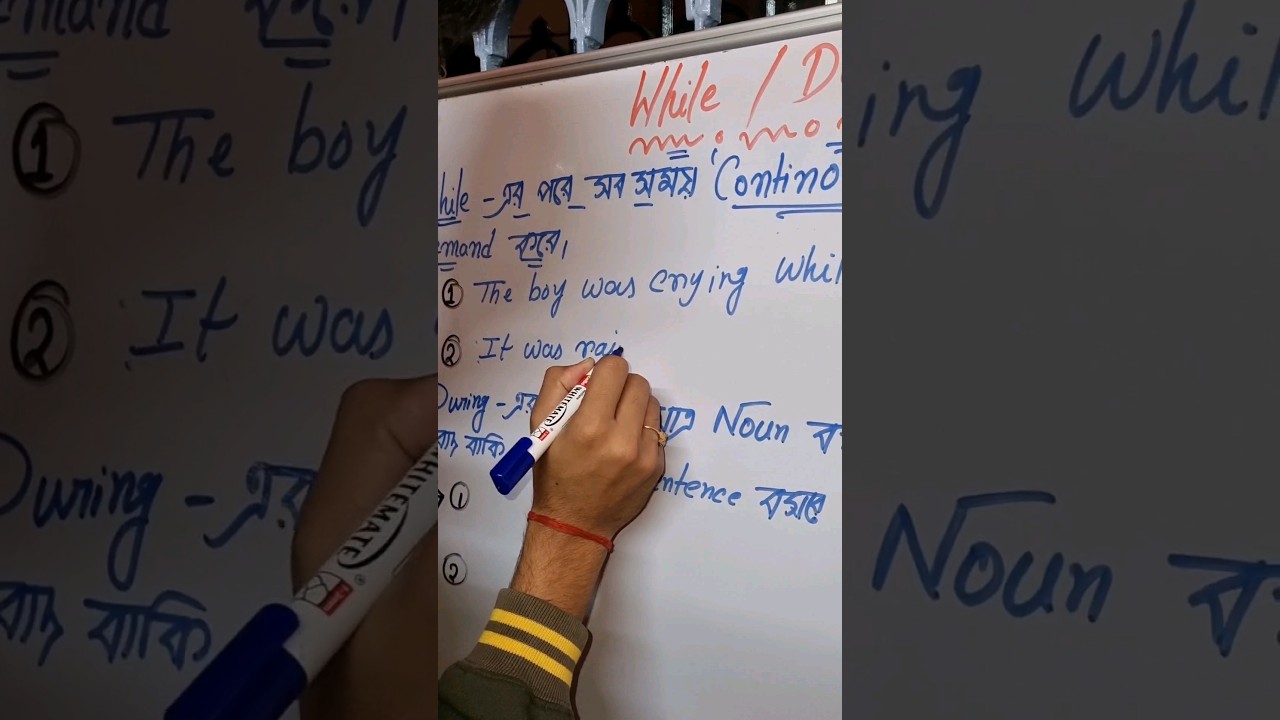 While / D
hile - এর পরে সব সময় 'Contino
emand করে।
① The boy was crying whil
② It was rai
During - এর Noun ব
বাদ বাকি entence বসবে
①
②
WHITEMATE